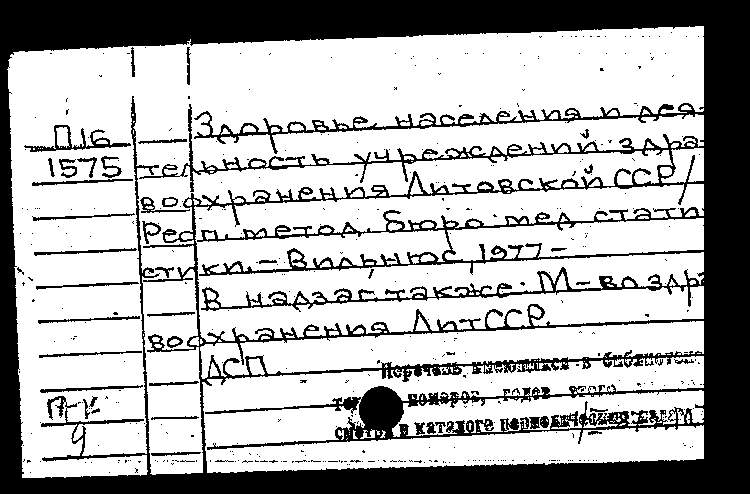 П16
1575
Здоровье населения и дея-
тельность учреждений здра-
воохранения Литовской ССР /
Респ. метод. бюро мед. стати
стики. - Вильнюс, 1977 -
В надзаг. также: М-во здра
воохранения ЛитССР.
ДСП.
Перечень имеющихся в библиотеке
номеров, годов этого
смотри в каталоге периодических
9